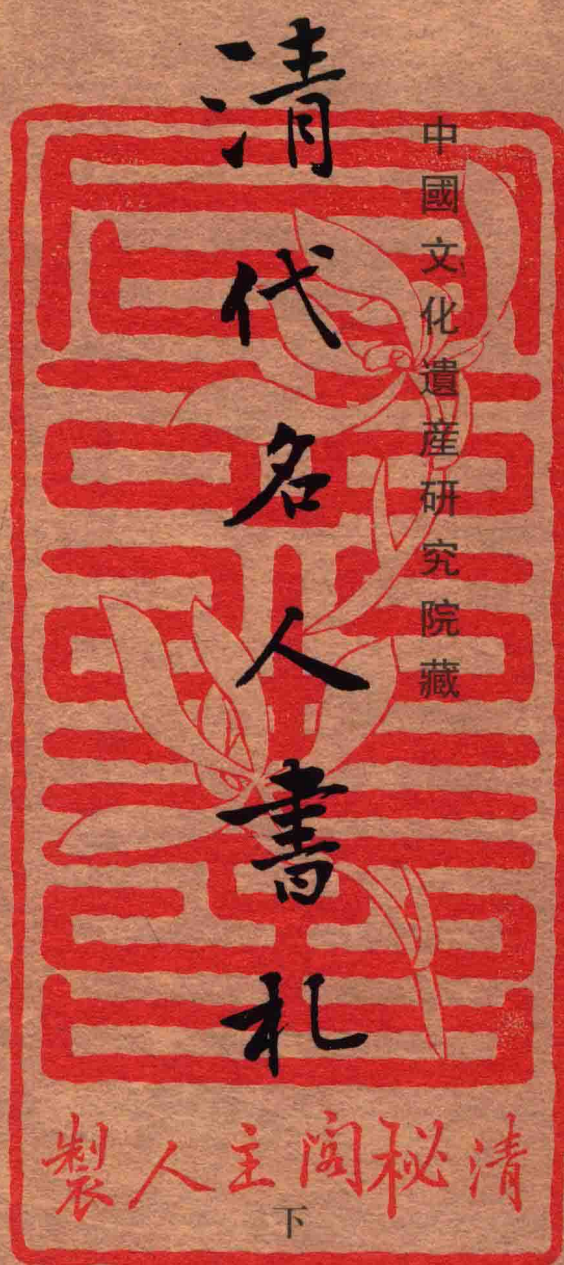 中國文化遺産研究院藏
清代名人書札
下
清秘閣主人製